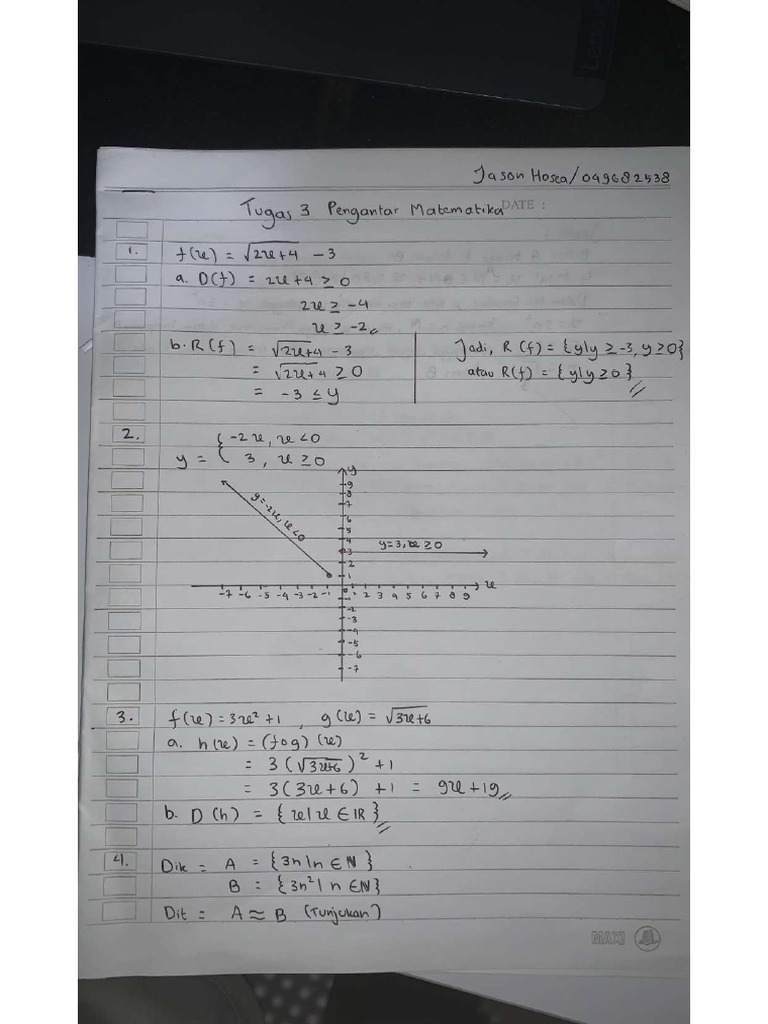 Jason Hosea/049682538
Tugas 3 Pengantar Matematika DATE :
1. f(x) = √2x+4 - 3
a. D(f) = 2x+4 ≥ 0
2x ≥ -4
x ≥ -2
b. R(f) = √2x+4 - 3
= √2x+4 ≥ 0
= -3 ≤ y
Jadi, R(f) = {y|y ≥ -3, y ≥ 0}
atau R(f) = {y|y ≥ 0}
2. y = { -2x, x < 0
3, x ≥ 0
y
9
8
7
6
5
4
3
2
1
y=-2x, x<0
y=3, x ≥ 0
-7 -6 -5 -4 -3 -2 -1 0 1 2 3 4 5 6 7 8 9 x
-1
-2
-3
-4
-5
-6
-7
3. f(x) = 3x² + 1 , g(x) = √3x+6
a. h(x) = (fog)(x)
= 3(√3x+6)² + 1
= 3(3x+6) + 1 = 9x+19
b. D(h) = {x|x ∈ IR}
4. Dik = A = {3n|n ∈ N}
B = {3n²|n ∈ N}
Dit = A ≈ B (Tunjukan)
MAXI